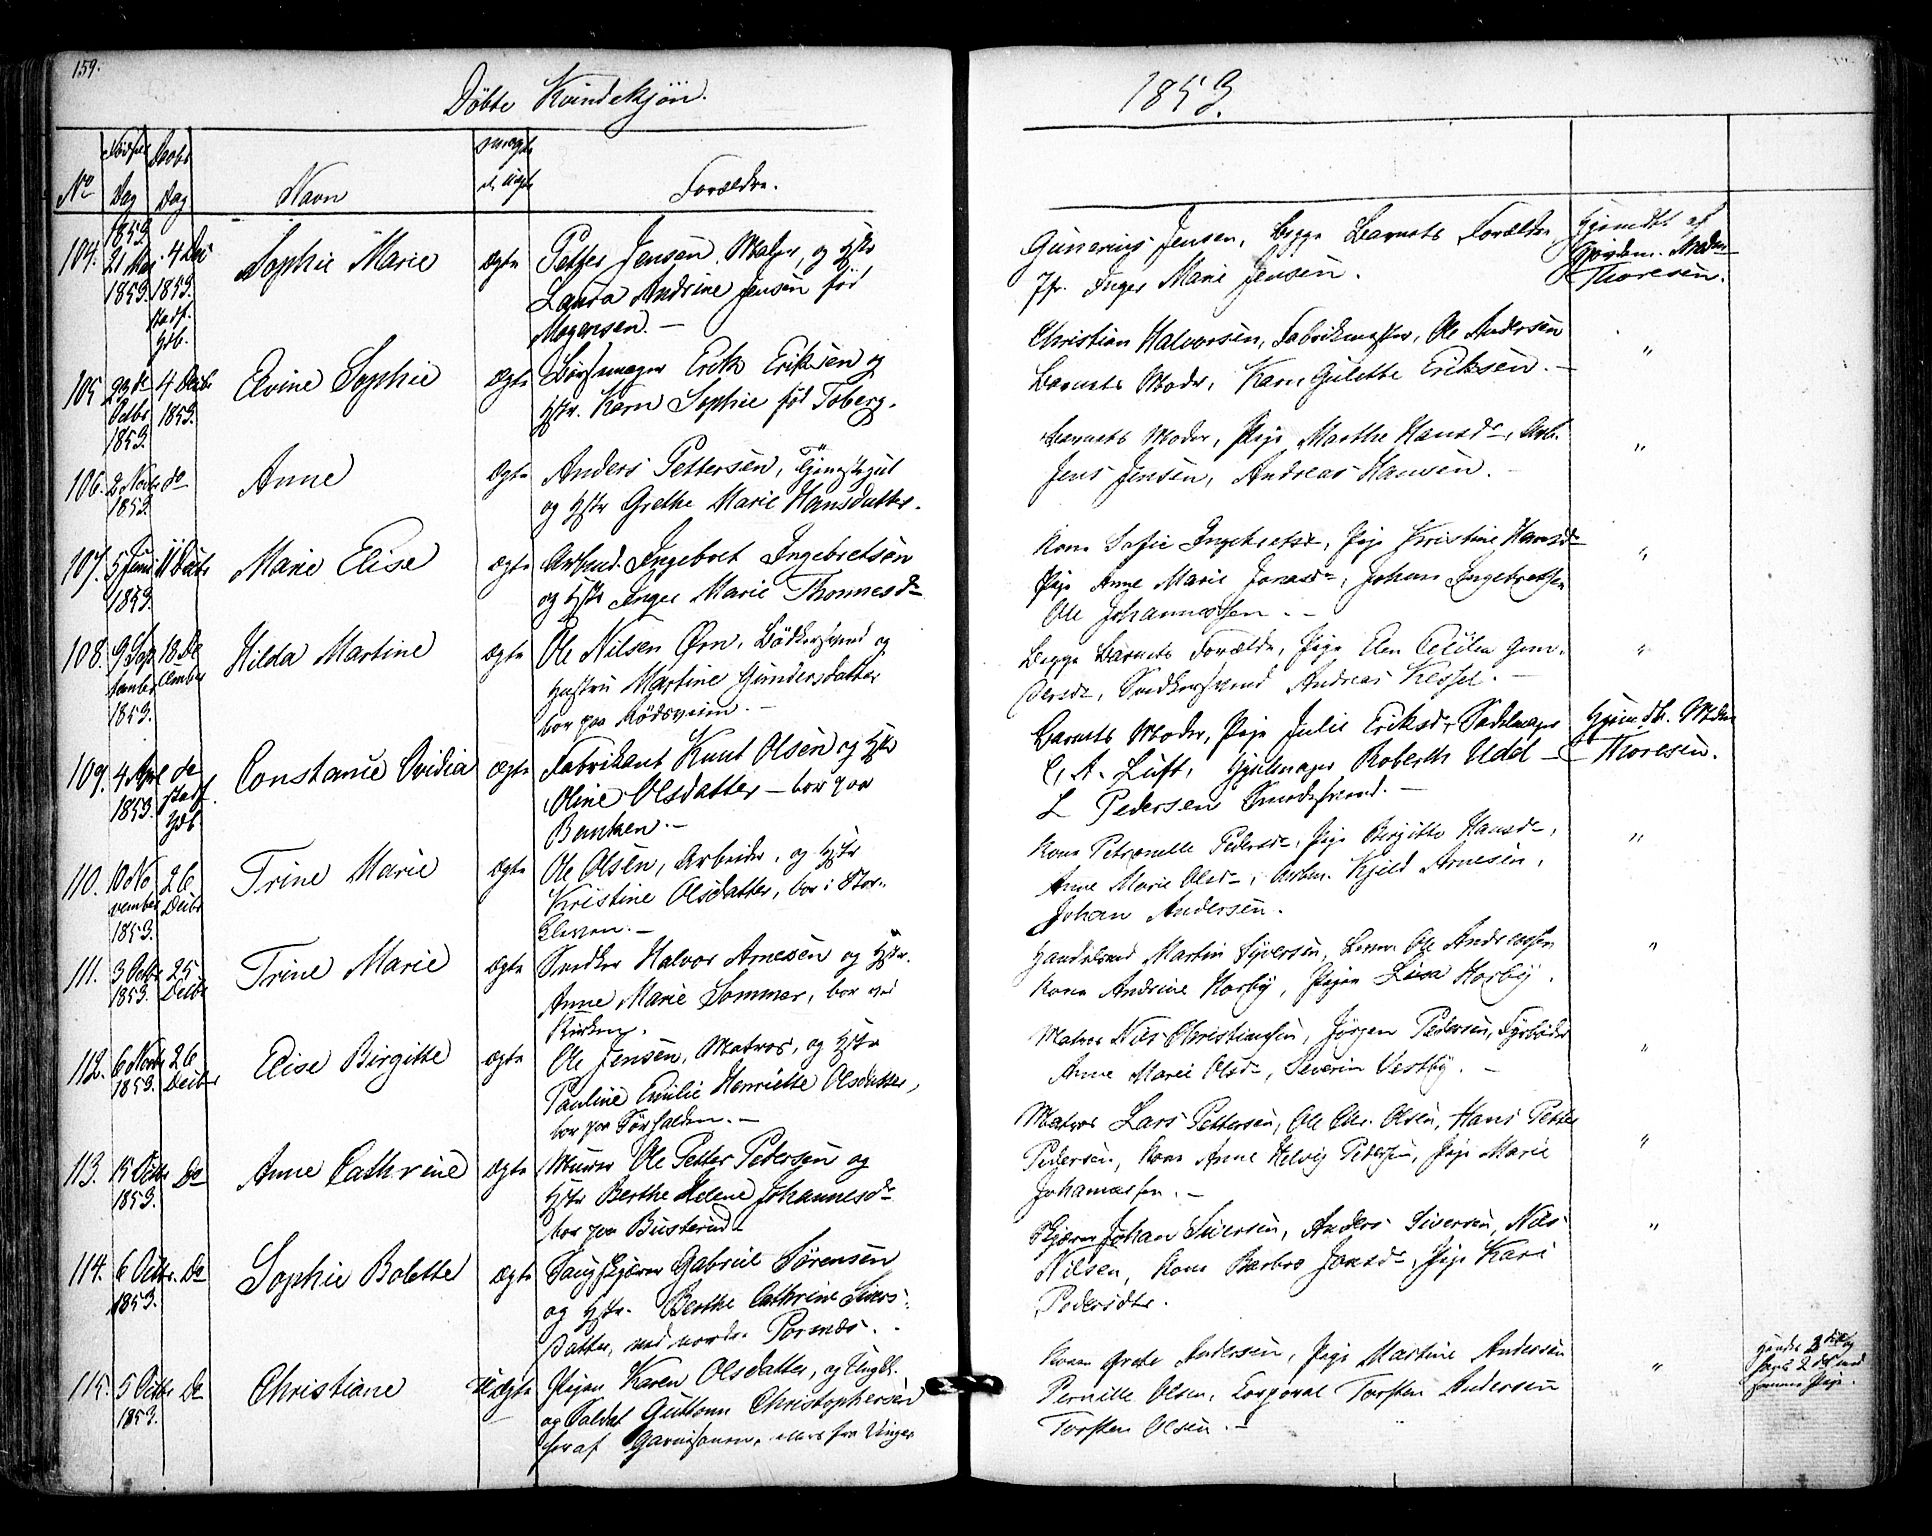 159.
Døbte Kvindekjøn.
1853.
No
Dag
Døbt
Dag
Navn
Forældre.
104.
1853
21 Maj
1853.
4 Dec
1853.
Sophie Marie
ægte
Petter Jensen, Maler, og Hstr
Laura Andrine Jensen fød
Mogensen. —
Gunerius Jensen, begge Barnets Forældre
Jfr. Inger Marie Jensen.
Hjemdbt af
Thoresen.
105
23de
Octbr
1853.
4 Decbr
1853.
Elvine Sophie
ægte
Børsemager Erik Eriksen og
Hstr. Karn Sophie fød Toberg.
Christian Halvorsen, Fabrikmester, Ole Andersen
Barnets Moder, Karn Gulette Eriksen. —
"
106.
2 Novbr
1853.
do
Anne
ægte
Anders Pettersen,
og Hstr Grethe Marie Hansdatter.
Barnets Moder, Pige Marthe Hansd., Arb.
Jens Jensen, Andreas Hansen. -
"
107.
5 Juni
1853.
11 Decbr
Marie Elise
ægte
Arbmd. Ingebret Ingebretsen
og Hstr Inger Marie Thommesd
Kone Sofie Ingebretsd, Pige Kristine Hansd
Pige Anne Marie Jonasd, Johan Ingebretsen
Ole Johannessen. -
"
108.
9 Sep
tember
1853.
18 De
cember
Hilda Martine
ægte
Ole Nilsen Ørn, Bødkersvend og
Hustru Martine Gundersdatter
bor paa Rödsveien. —
Begge Barnets Forældre, Pige Elen Cecilia Gun-
dersd, Snedkersvend Andreas Kessel. —
"
109.
4 Apr
1853.
do
Constance Ovidia
ægte
Fabrikant Knut Olsen og Hstr
Oline Olsdatter — bor paa
Barnets Moder, Pige Julie Eriksd, Sadelmager
C. A. Luft, Hjulmager Roberth Udd —
L Pedersen Smedesvend. —
Thoresen.
110.
10 No
vember
1853.
26
Decbr
Trine Marie
ægte
Ole Olsen, Arbeider, og Hstr
Kristine Olsdatter, bor i Stor-
Kone Petronelle Pedersd, Pige Birgitte Hansd,
Anne Marie Olsd, Arbm. Kjeld Arnesen,
Johan Andersen.
"
111.
3 Octbr
1853.
25
Decbr
Trine Marie
ægte
Snedker Halvor Arnesen og Hstr.
Anne Marie Sommer, bor ved
Kirken.
Handelsmd Martin Syversen, Ole Andreassen
Kone Andrine Horby, Pigen Lisa Horby.
"
112.
6 Novbr
1853.
26
Decbr
Elise Birgitte
ægte
Ole Jensen, Matros, og Hstr
Pauline Emilie Henriette Olsdatter,
bor paa Sørhalden. —
Matros Nils Christiansen, Jørgen Pedersen, Fyrbøder
Anne Marie Olsd, Severin Vestby. —
"
113.
15 Octbr
1853.
Do
Anne Cathrine
ægte
Murer Ole Petter Pedersen og
Hstr Berthe Helene Johannesd
bor paa Busterud
Matros Lars Pettersen, Ole Chr. Olsen, Hans Petter
Pedersen, Kone Anne Helvig Pedersen, Pige Marie
Johannessen. —
"
114.
6 Octbr.
1853.
Do
Sophie Bolette
ægte
Gabriel Sørensen
og Hstr. Berthe Cathrine Sivers-
datter, ved nordre
Johan Siversen, Anders Siversen, Nils
Nilsen, Kone Barbro Jonsd, Pige Kari
Pedersdtr.
"
115.
5 Octbr
1853.
Do
Christiane
Uægte
Pigen Karen Olsdatter, og Ungk.
og Soldat Guttorm Christophersen
her af Garnisonen, ellers fra Vinger
Kone Grete Andersen, Pige Martine Andersen
Pernille Olsen, Corporal Torsten Andersen
Torsten Olsen. —
"